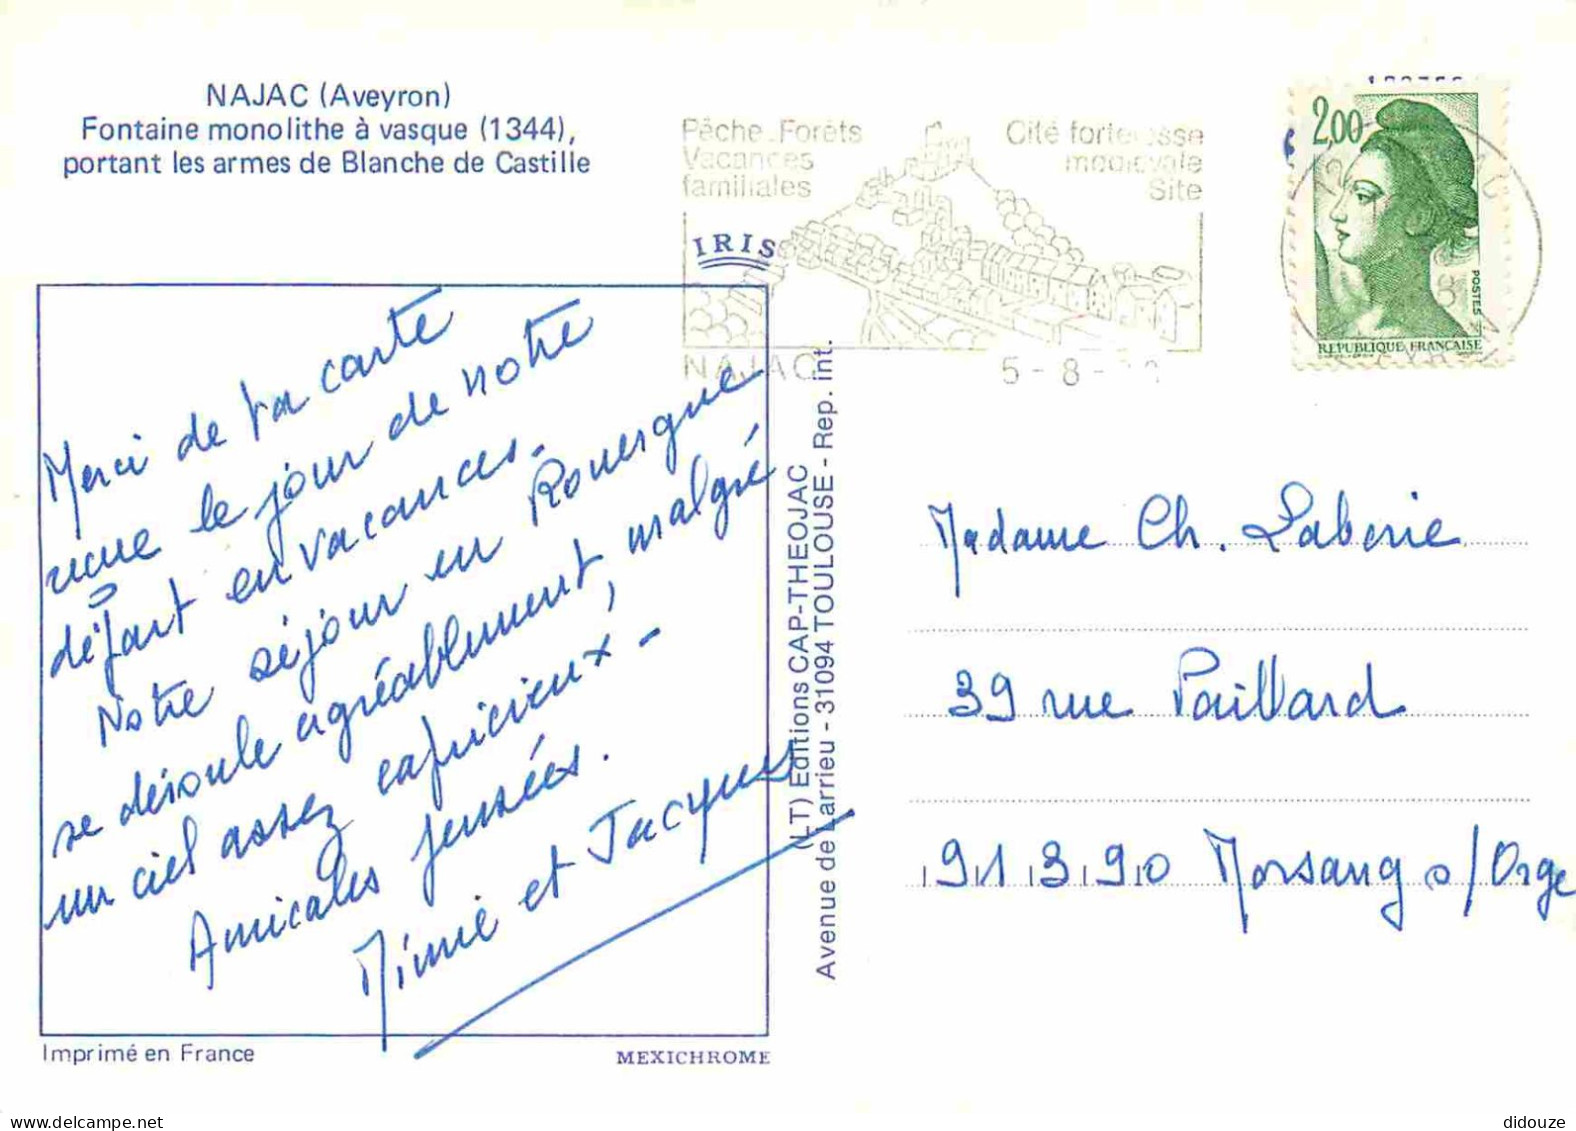 NAJAC (Aveyron)
Fontaine monolithe à vasque (1344),
portant les armes de Blanche de Castille
Pêche_Forêts
Vacances
familiales
Cité forteresse
médiévale
Site
IRIS
NAJAC
5-8-
2,00
POSTES
REPUBLIQUE FRANCAISE
Merci de ta carte
reçue le jour de notre
départ en vacances.
Notre séjour en Rouergue
se déroule agréablement, malgré
un ciel assez capricieux -
Amicales pensées.
Mimie et Jacques
(LT) Editions CAP-THEOJAC
Avenue de Larrieu - 31094 TOULOUSE - Rep. int.
Madame Ch. Laborie
39 rue Paillard
91390 Morsang s/Orge
Imprimé en France
MEXICHROME
didouze